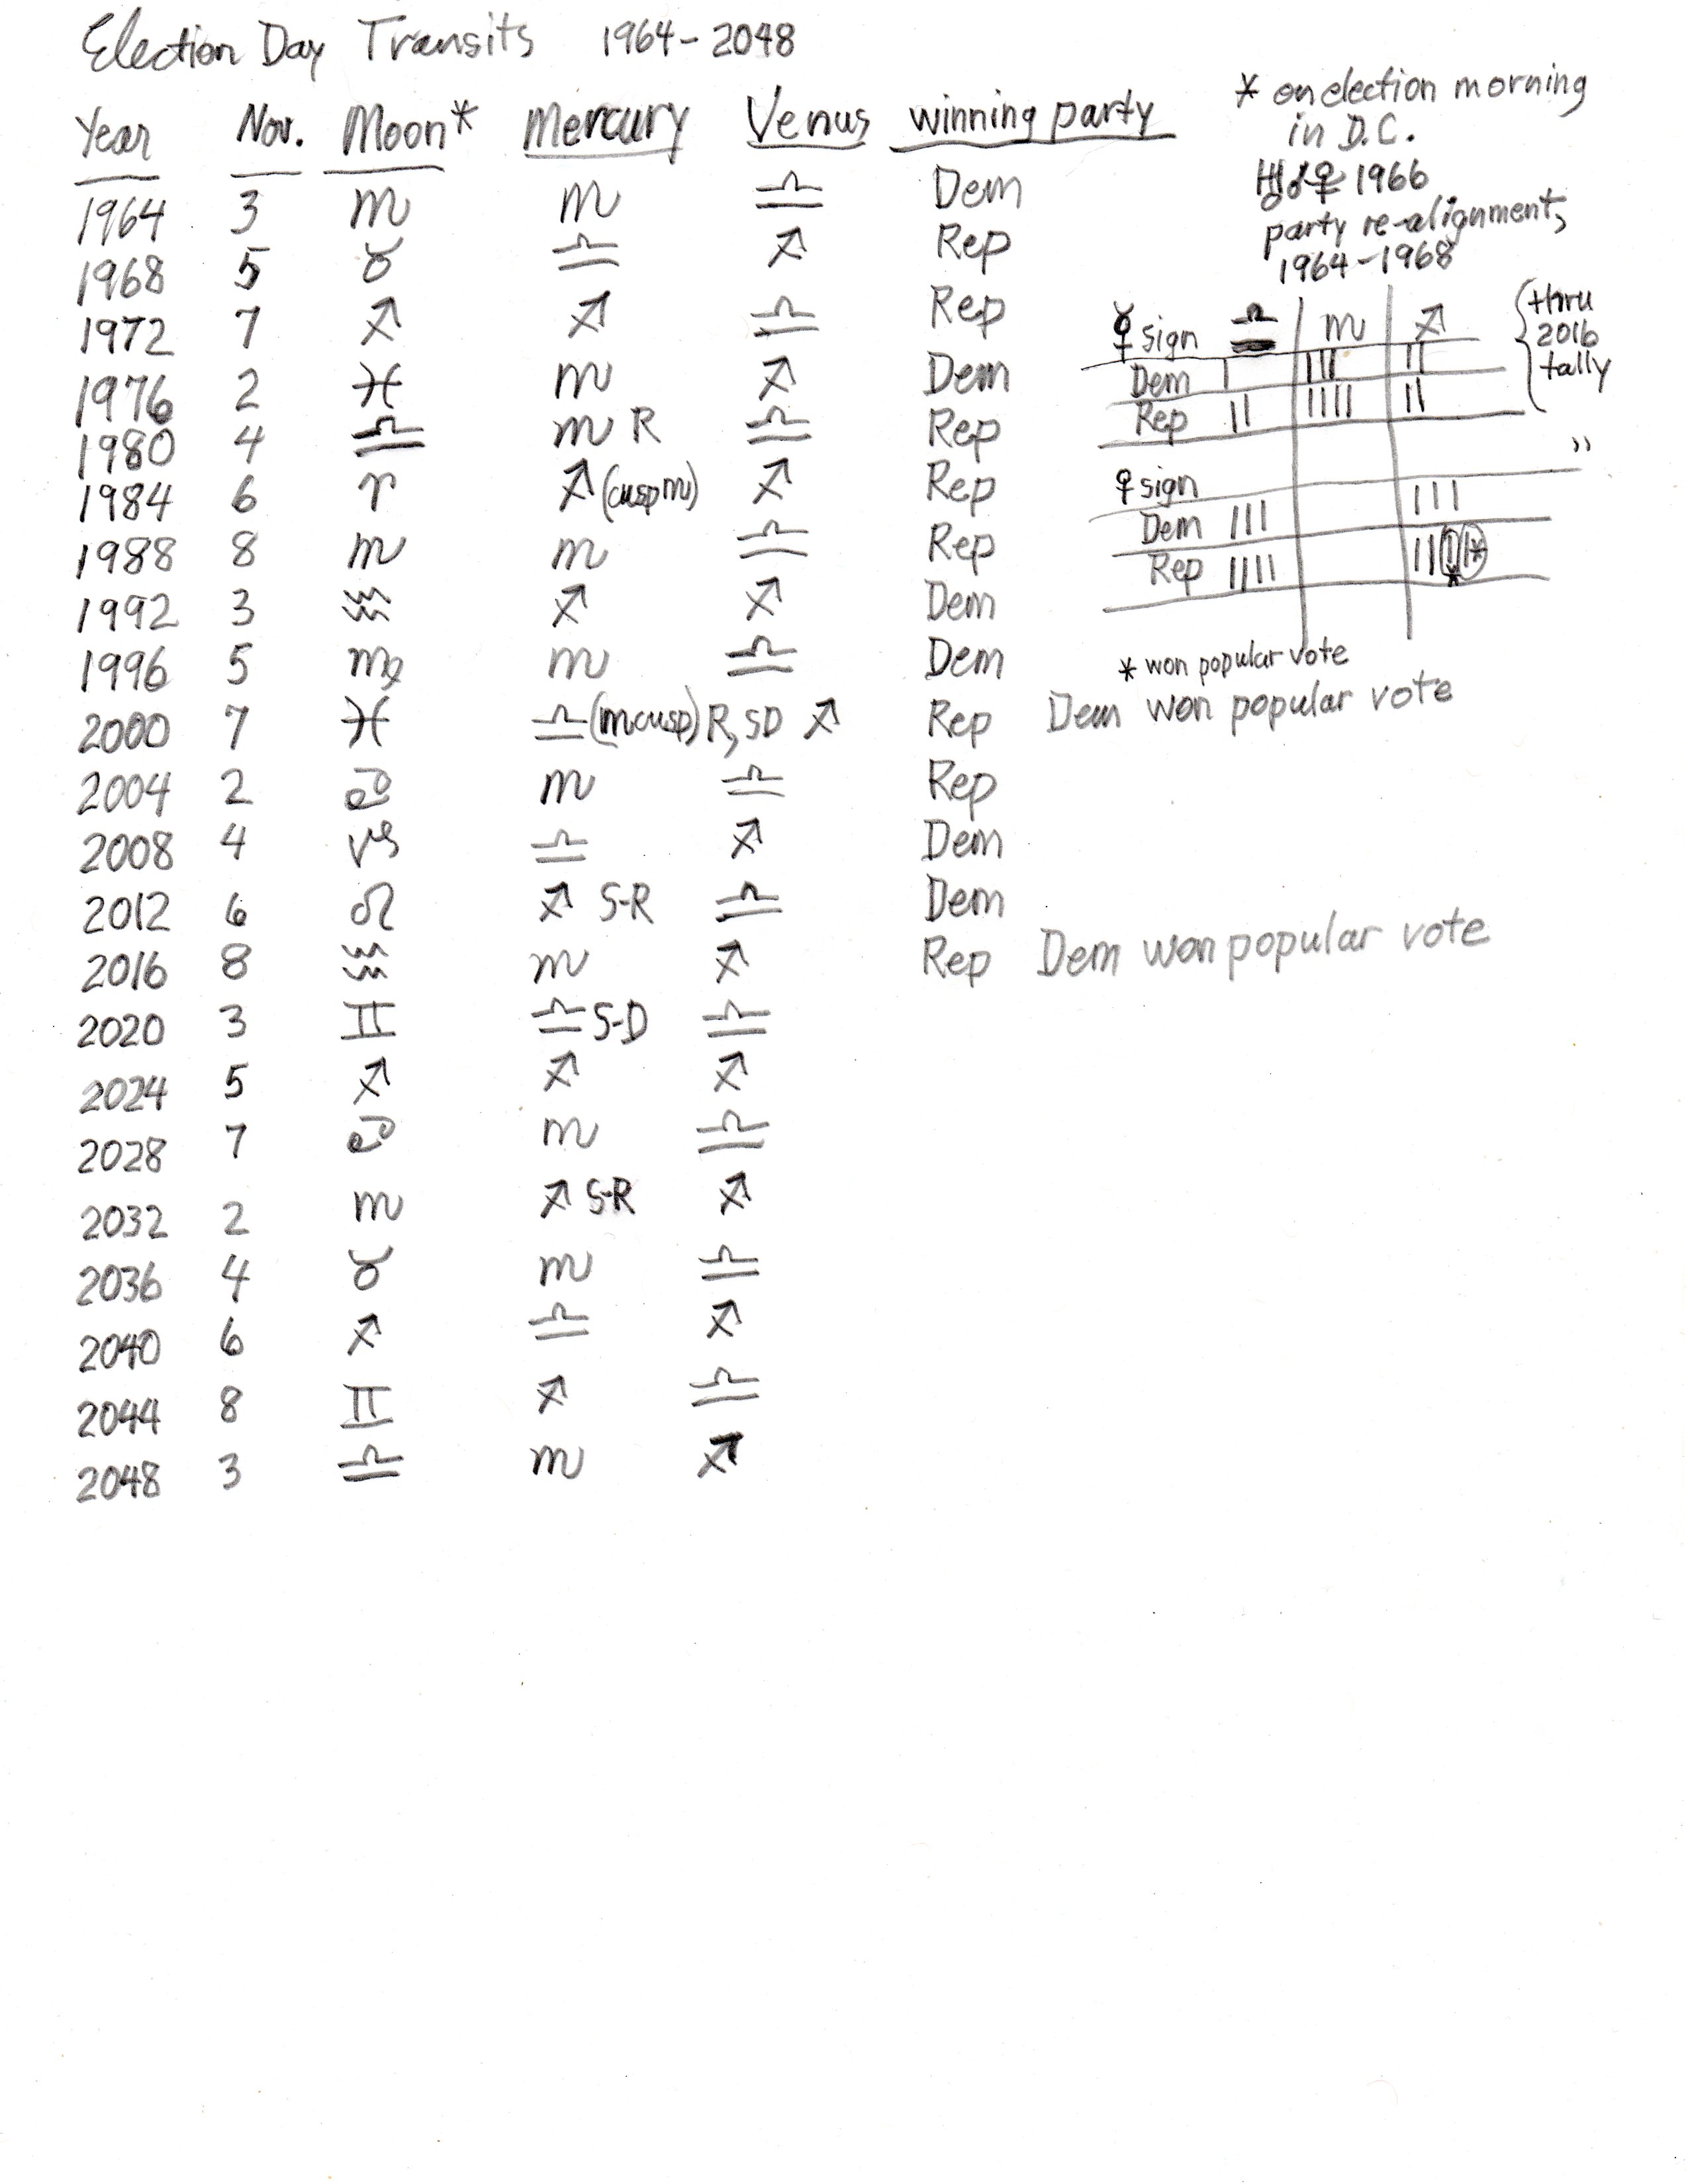 Election Day Transits 1964-2048
* on election morning
in D.C.
Year Nov. Moon* Mercury Venus winning party
♅☌♀ 1966
party re-alignment,
1964-1968
1964 3 ♏ ♏ ♎ Dem
1968 5 ♉ ♎ ♐ Rep
1972 7 ♐ ♐ ♎ Rep
1976 2 ♓ ♏ ♐ Dem
1980 4 ♎ ♏ R ♎ Rep
1984 6 ♈ ♐ (cusp ♏) ♐ Rep
1988 8 ♏ ♏ ♎ Rep
1992 3 ♒ ♐ ♐ Dem
1996 5 ♍ ♏ ♎ Dem
2000 7 ♓ ♎ (♏ cusp) R, SD ♐ Rep Dem won popular vote
2004 2 ♋ ♏ ♎ Rep
2008 4 ♑ ♎ ♐ Dem
2012 6 ♌ ♐ S-R ♎ Dem
2016 8 ♒ ♏ ♐ Rep Dem won popular vote
2020 3 ♊ ♎ S-D ♎
2024 5 ♐ ♐ ♐
2028 7 ♋ ♏ ♎
2032 2 ♏ ♐ S-R ♐
2036 4 ♉ ♏ ♎
2040 6 ♐ ♎ ♐
2044 8 ♊ ♐ ♎
2048 3 ♎ ♏ ♐
☿ sign ♎ ♏ ♐
Dem | ||| ||
Rep || |||| ||
thru
2016
tally
♀ sign "
Dem ||| |||
Rep |||| ||||*
* won popular vote